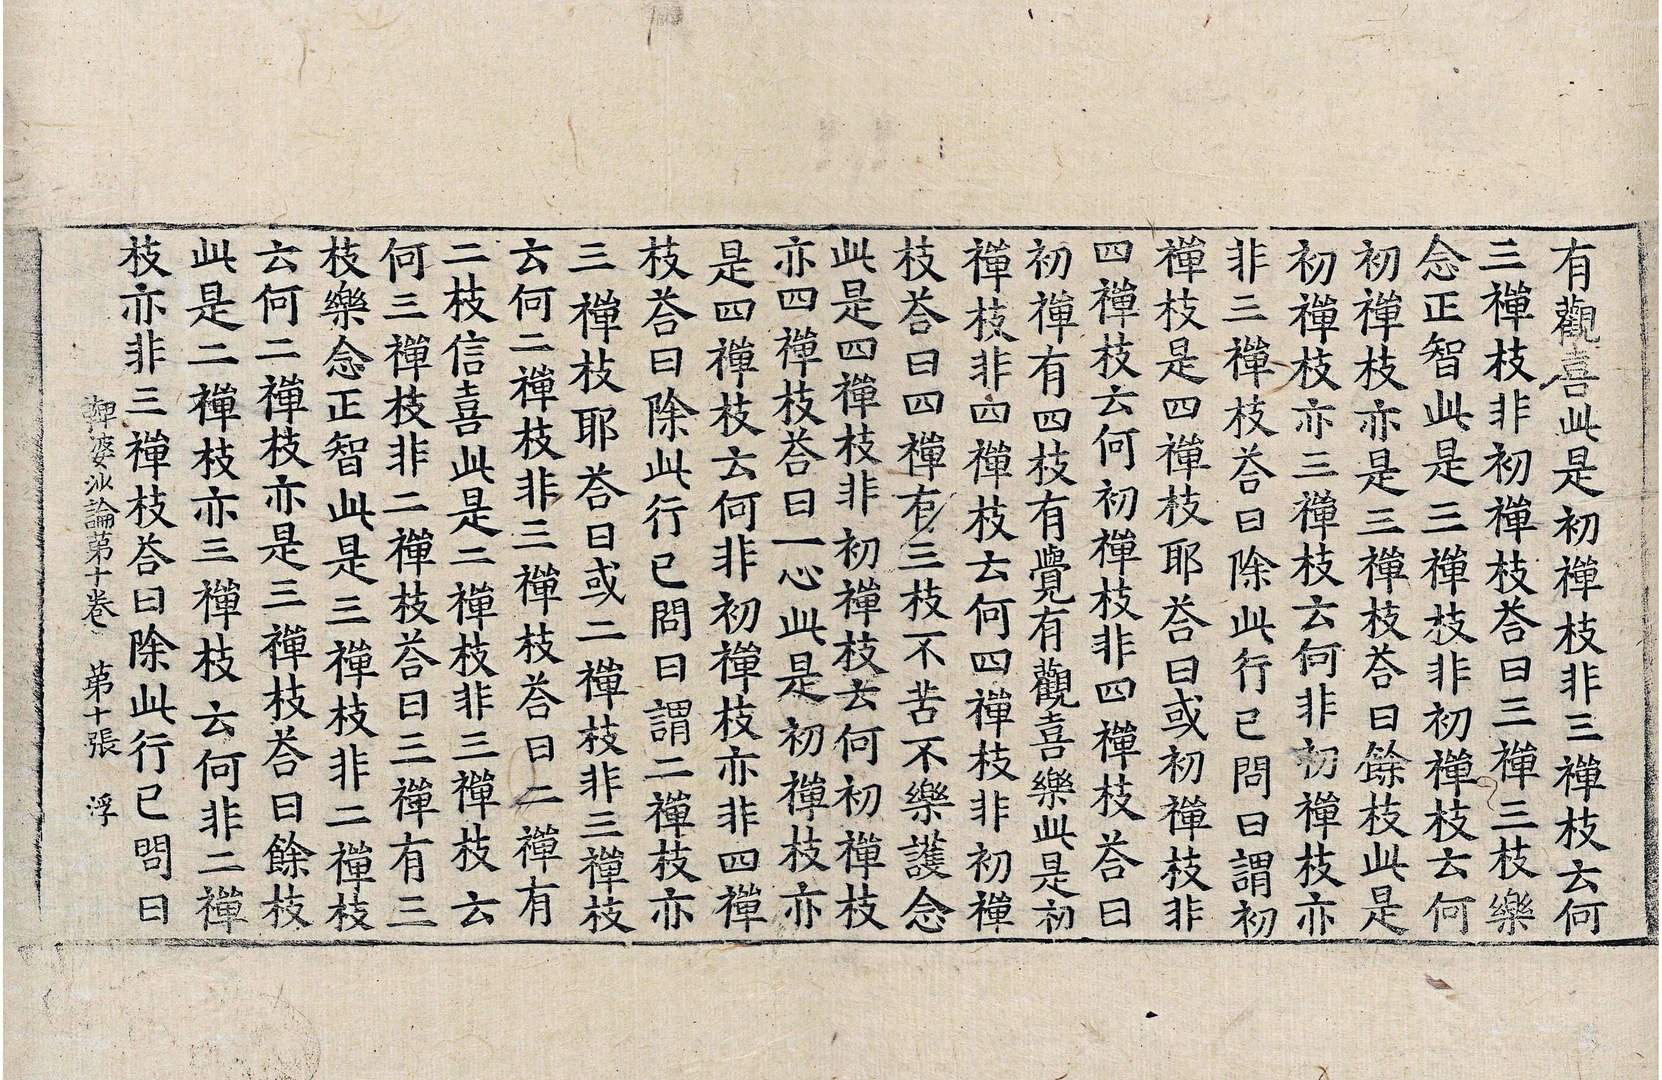 有觀喜此是初禪枝非三禪枝云何
三禪枝非初禪枝荅曰三禪三枝樂
念正智此是三禪枝非初禪枝云何
初禪枝亦是三禪枝荅曰餘枝此是
初禪枝亦三禪枝云何非初禪枝亦
非三禪枝荅曰除此行已問曰謂初
禪枝是四禪枝耶荅曰或初禪枝非
四禪枝云何初禪枝非四禪枝荅曰
初禪有四枝有覺有觀喜樂此是初
禪枝非四禪枝云何四禪枝非初禪
枝荅曰四禪有三枝不苦不樂護念
此是四禪枝非初禪枝云何初禪枝
亦四禪枝荅曰一心此是初禪枝亦
是四禪枝云何非初禪枝亦非四禪
枝荅曰除此行已問曰謂二禪枝亦
三禪枝耶荅曰或二禪枝非三禪枝
云何二禪枝非三禪枝荅曰二禪有
二枝信喜此是二禪枝非三禪枝云
何三禪枝非二禪枝荅曰三禪有三
枝樂念正智此是三禪枝非二禪枝
云何二禪枝亦是三禪枝荅曰餘枝
此是二禪枝亦三禪枝云何非二禪
枝亦非三禪枝荅曰除此行已問曰
鞞婆沙論第十卷 第十張 浮